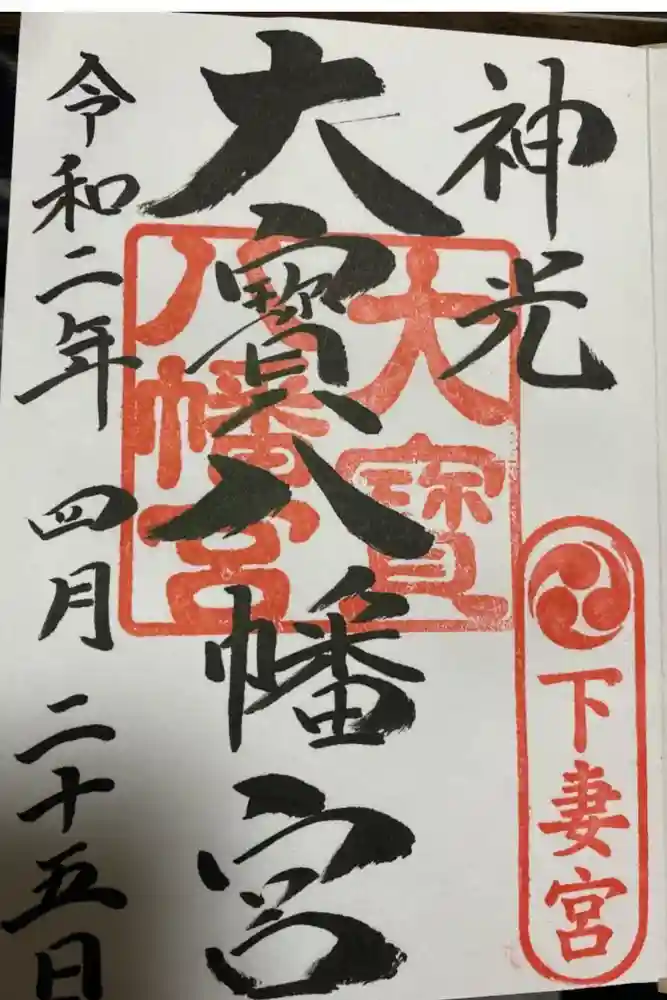 神光
大寳八幡宮
令和二年 四月 二十五日
大寳
八幡宮
下妻宮